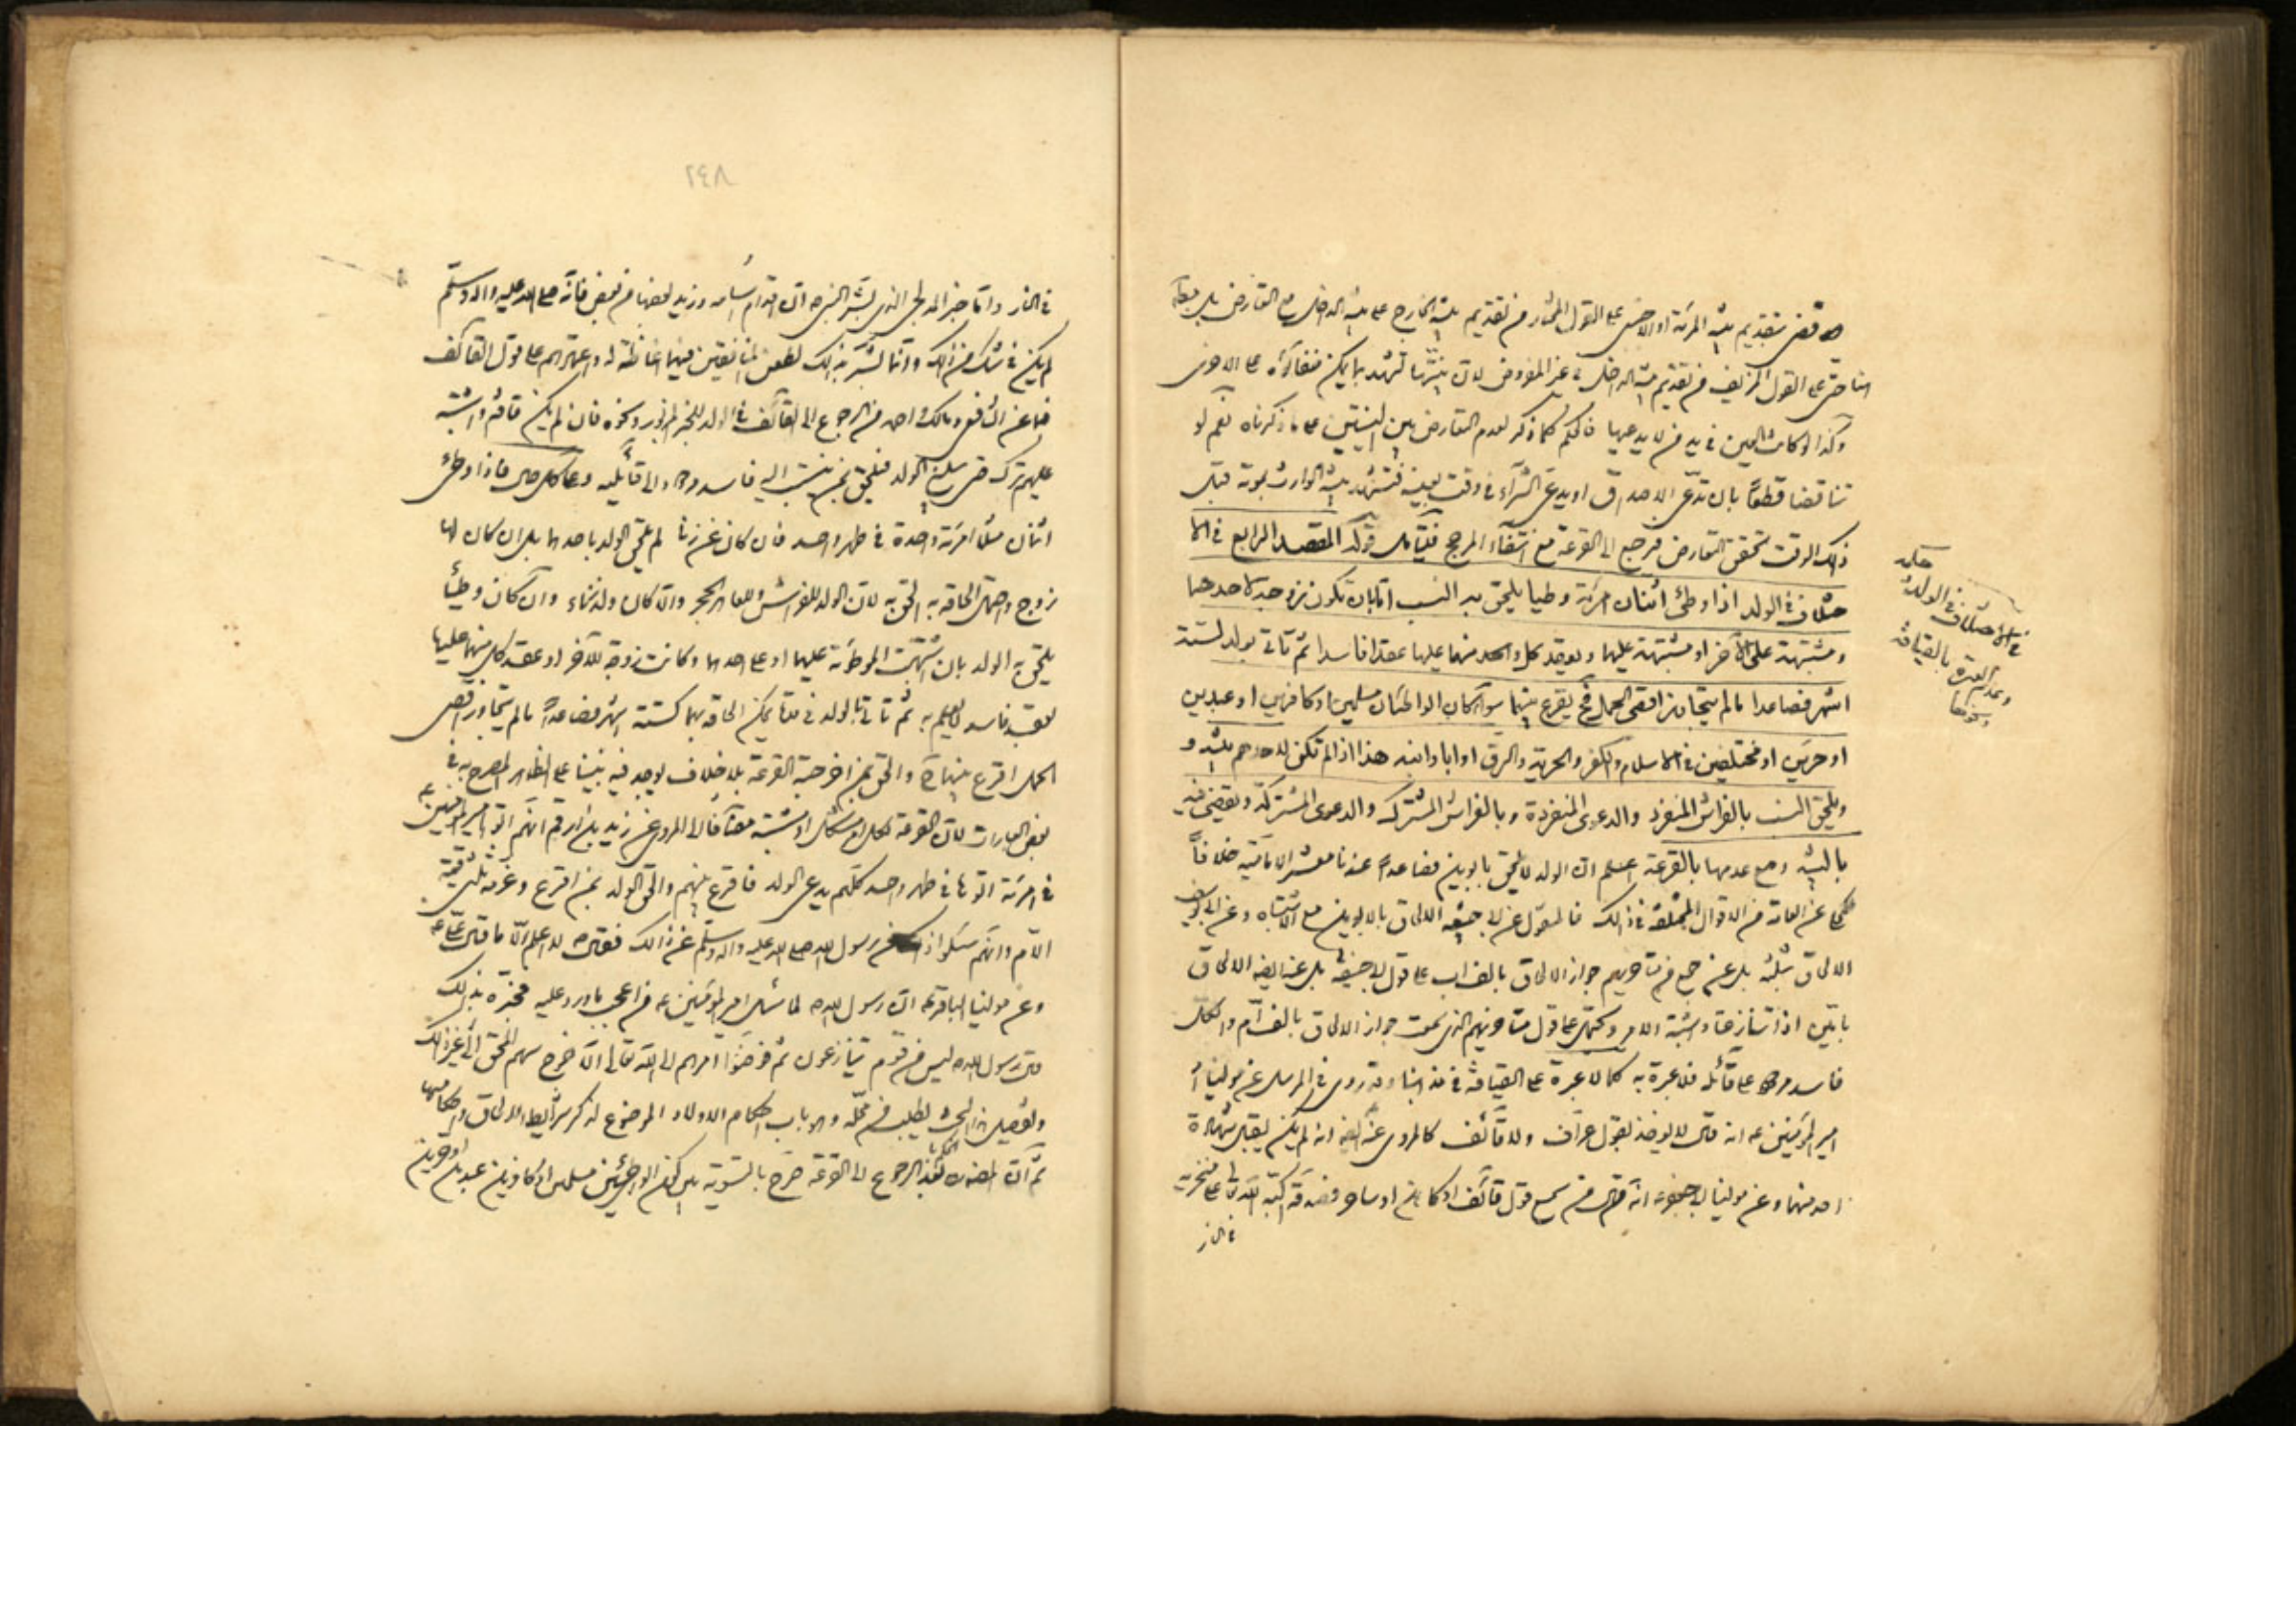 فى تقديم بينة المرأة او الاجنبى على القول المختار من تقديم بينة الخارج على بينة الداخل مع التعارض بل
حتى على القول الاخر من تقديم بينة الداخل فى غير المفروض لان بينتها تشهد بما يمكن خفاؤه على الاخرى
وكذا لو كانت العين فى يد من لا يدعيها فالحكم كما ذكر لعدم التعارض بين البينتين على ما ذكرناه نعم لو
تناقضا قطعا بان تدعى الاصداق او يدعى الشراء فى وقت بعينه فتشهد بينة الوارث بموته قبل
ذلك الوقت تحقق التعارض فيرجع الى القرعة مع انتفاء المرجح فليتامل قوله المقصد الرابع فى الا
ختلاف فى الولد اذا وطئ اثنان امرأة وطيا يلحق به النسب اما بان تكون زوجة لاحدهما
ومشتبهة على الآخر او مشتبهة عليهما او يعقد كل واحد منهما عليها عقدا فاسدا ثم تاتى بولد لستة
اشهر فصاعدا ما لم يتجاوز اقصى الحمل فح يقرع بينهما سواء كان الواطئان مسلمين او كافرين او عبدين
او حرين او مختلفين فى الاسلام والكفر والحرية والرق او ابا وابنه هذا اذا لم تكن لاحدهم بينة و
ويلحق النسب بالفراش المنفرد والدعوى المنفردة وبالفراش المشترك والدعوى المشتركة ويقضى فيه
بالبينة ومع عدمها بالقرعة اعلم ان الولد لا يلحق بابوين فصاعدا عندنا معشر الامامية خلافا
لما عن العامة من الاقوال المختلفة فى ذلك فالمنقول عن ابى حنيفة الالحاق بالابوين مع الاشتباه وعن ابى يوسف
الالحاق بثلثة بل عن جمع من متاخريهم جواز الالحاق بالف اب على قول ابى حنيفة بل عنه ايضا الالحاق
بامين اذا تنازعتا واشتبه الامر ويحتمل على قول متاخريهم الذى سمعت جواز الالحاق بالف ام والكل
فاسد مردود على قائله فلا عبرة به كما لا عبرة على القيافة فى مذهبنا وقد روى فى المرسل عن مولينا
امير المؤمنين عه انه قال لا يؤخذ بقول عراف ولا قائف كالمروى عنه ايضا انه لم يكن يقبل شهادة
احد منهما وعن مولينا ابى جعفر عه انه قال من سمع قول قائف او كاهن او ساحر فصدقه اكبه الله تعالى على منخريه
فى النار
فى الاختلاف فى الولد
وعدم العبرة بالقيافة
ونحوها
فى النار واما خبر المدلجى الذى بشر النبى ص ان اقدام اسامة وزيد بعضها من بعض فانه صلى الله عليه واله وسلم
لم يكن فى شك من ذلك وانما بشر بذلك لطعن المنافقين فيهما اغاظة له واعتمادهم على قول القائف
فما عن الشافعى ومالك واحمد من الرجوع الى القائف فى الولد للخبر المزبور ونحوه فان لم يكن قائف واشتبه
عليهم ترك حتى يبلغ الولد فيلحق بمن ينتسب اليه فاسد مردود الى قائليه وعلى كل حال فاذا وطئ
اثنان مثلا امرأة واحدة فى طهر واحد فان كان عن زنا لم يلحق الولد باحدهما بل ان كان لها
زوج واحتمل الحاقه به الحق به لان الولد للفراش وللعاهر الحجر والا كان ولد زناء وان كان وطيا
يلحق به الولد بان اشتبهت الموطوئة عليهما او على احدهما وكانت زوجة للآخر او عقد كل منهما عليها
بعقد فاسد لا يعلم به ثم تاتى بالولد فى مدة يمكن الحاقه بهما كستة اشهر فصاعدا ما لم يتجاوز اقصى
الحمل اقرع بينهما والحق بمن اخرجته القرعة بلا خلاف يوجد فيه بيننا على الظاهر المصرح به فى
بعض العبارات لان القرعة لكل امر مشكل او مشتبه مضافا الى المروى عن زيد بن ارقم انهم اتوا امير المؤمنين عه
فى امرأة اتوها فى طهر واحد كلهم يدعى الولد فاقرع بينهم والحق الولد بمن اقرع وغرمه ثلثى قيمة
الام وانهم سئلوا رسول الله صلى الله عليه واله وسلم عن ذلك فقال ص لا اعلم الا ما قال على عه
وعن مولينا الباقر عه ان رسول الله ص لما سئل امير المؤمنين عه من اعجب ما ورد عليه فخبره بذلك
قال رسول الله ص ليس من قوم تنازعوا ثم فوضوا امرهم الى الله تعالى الا خرج سهم المحق الى غير ذلك
وتفصيل البحث يطلب من محله وهو باب احكام الاولاد الموضوع لذكر شرايط الالحاق واحكامها
ثم ان المصنف بعد الرجوع الى القرعة صرح بالتسوية بين كون الواطئين مسلمين او كافرين عبدين او حرين